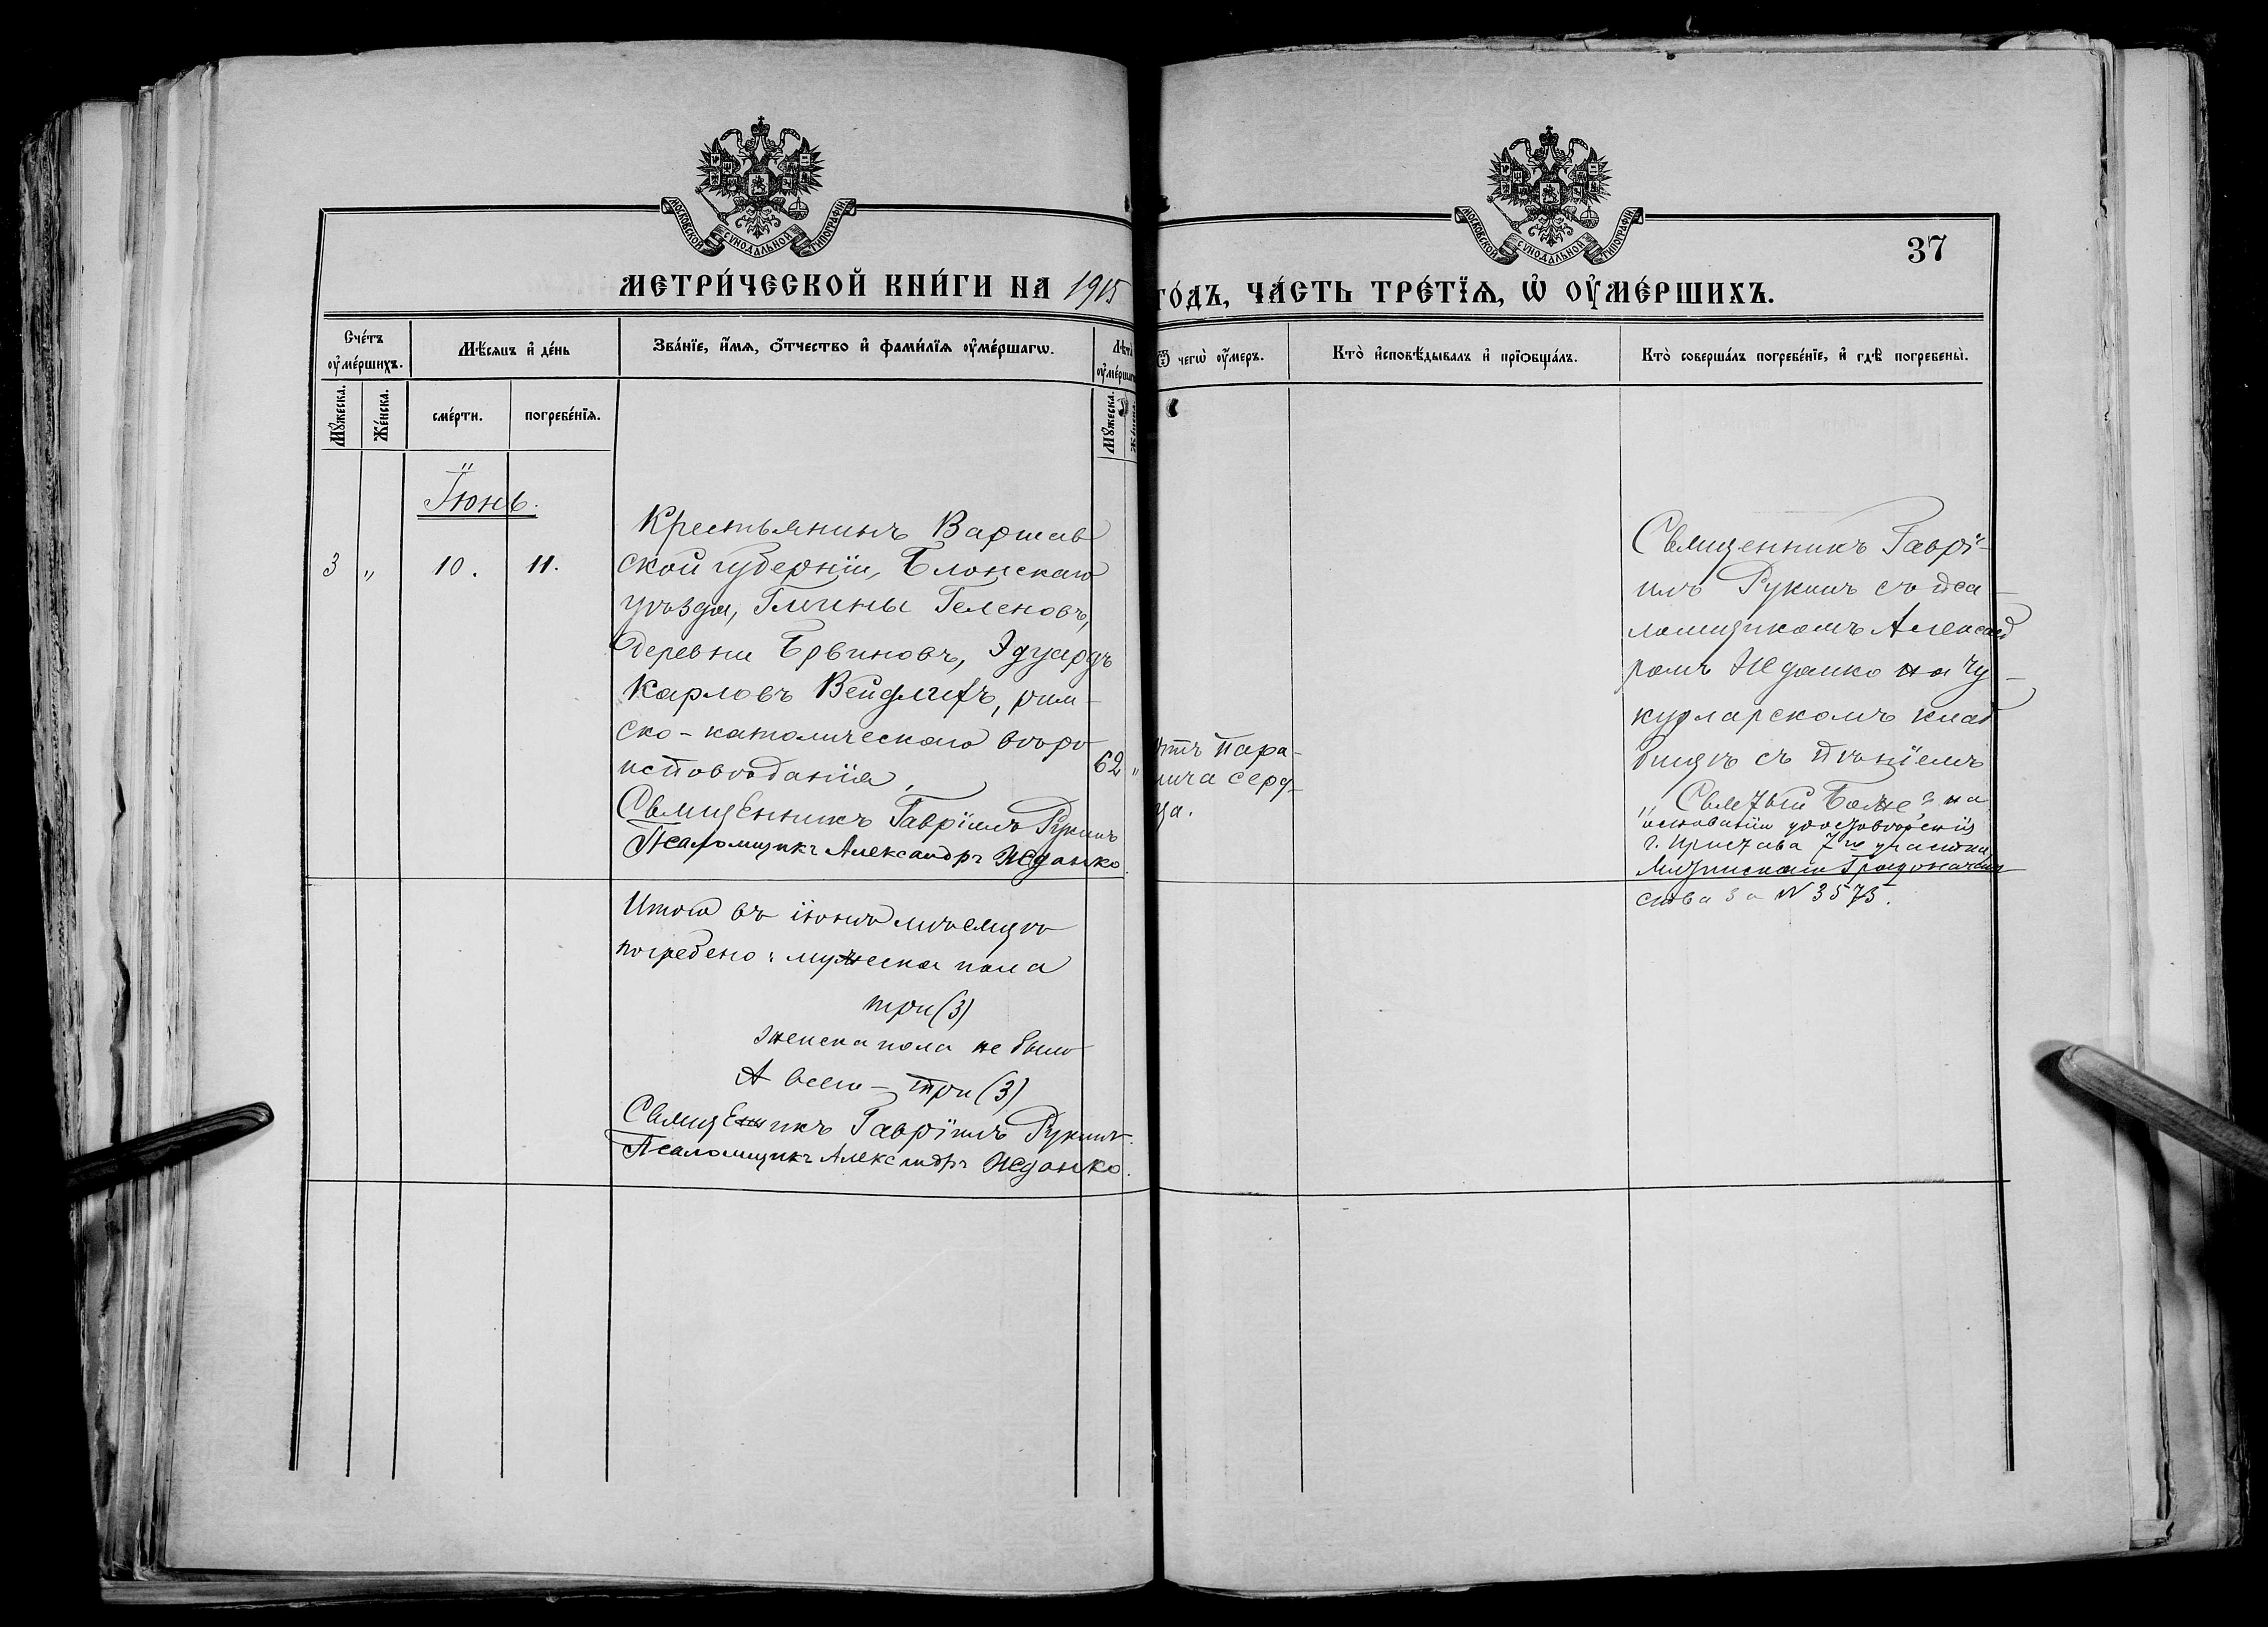 МОСКОВСКОЙ СУНОДАЛЬНОЙ ТИПОГРАФІИ
МОСКОВСКОЙ СУНОДАЛЬНОЙ ТИПОГРАФІИ
37
МЕТРИ́ЧЕСКОЙ КНИ́ГИ НА 1915
ГО́ДЪ, ЧА́СТЬ ТРЕ́ТЇѦ, Ѡ҆ ОУ҆МЕ́РШИХЪ.
Сче́тъ
оу҆ме́ршихъ.
Мѣ́сѧцъ и҆ де́нь
Зва́нїе, и҆́мѧ, ѻ҆́тчество и҆ фами́лїѧ оу҆ме́ршагѡ.
Лѣ́та
оу҆ме́ршагѡ
Ѿ чегѡ̀ оу҆́меръ.
Кто̀ и҆сповѣ́дывалъ и҆ прїѻбща́лъ.
Кто̀ соверша́лъ погребе́нїе, и҆ гдѣ̀ погребены̀.
Мꙋ́жеска.
Же́нска.
сме́рти.
погребе́нїѧ.
Мꙋ́жеска.
Же́нска.
Іюнь.
3 „ 10. 11.
Крестьянинъ Варшав
ской губерніи, Блонскаго
уѣзда, Гмины Геленовъ,
деревни Брвиновъ, Эдуардъ
Карловъ Вейдлихъ, рим-
ско-католическаго вѣро
исповѣданія.
62 „
отъ пара-
лича серд-
ца.
Священникъ Гавріилъ Рукинъ
Псаломщикъ Александръ Жданко.
Священникъ Гаврі-
илъ Рукинъ съ пса-
ломщикомъ Александ
ромъ Жданко на Чу-
курларскомъ клад
бищѣ съ пѣніемъ
„Святый Боже" на
основаніи удостовѣренія
г. Пристава 7го участка
Градоначаль
ства за N 3573.
Итого въ іюнѣ мѣсяцѣ
погребено: мужеска пола
три (3)
женска пола не было
А всего — три (3)
Священникъ Гавріилъ Рукинъ.
Псаломщикъ Александръ Жданко.